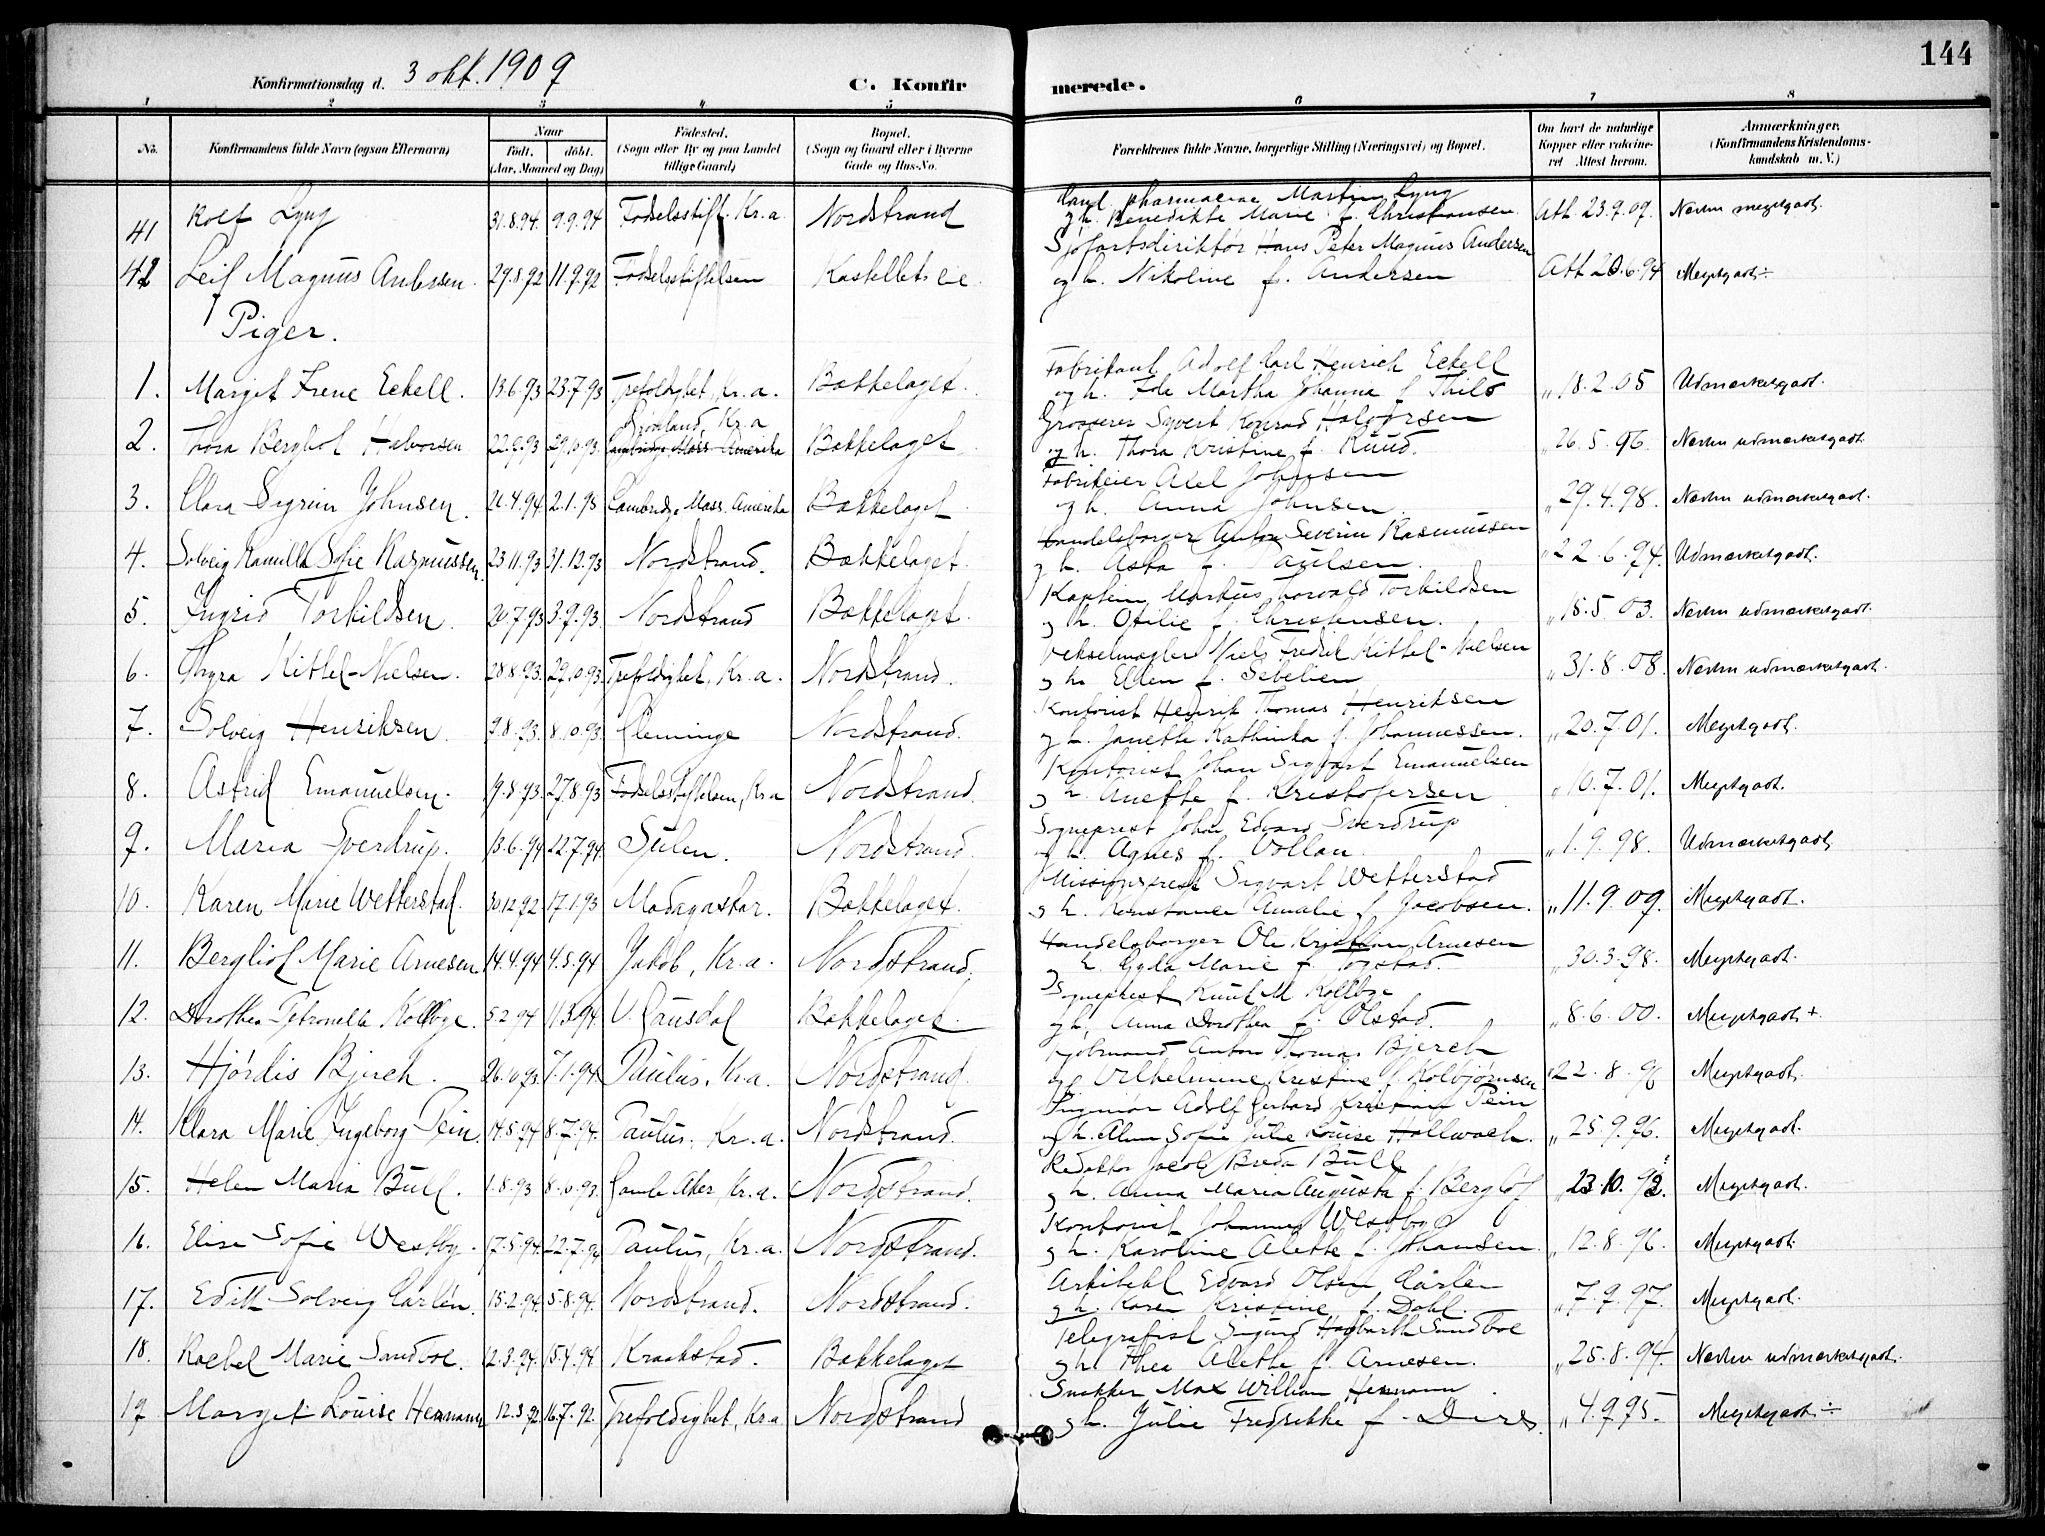 144
Konfirmationsdag d. 3 okt. 1909
C. Konfirmerede.
1 2 3 4 5 6 7 8
No. Konfirmandens fulde Navn (ogsaa Efternavn) Naar Født. døbt. (Aar, Maaned og Dag) Fødested. (Sogn eller By og paa Landet tillige Gaard) Bopæl. (Sogn og Gaard eller i Byerne Gade og Hus-No. Forældrenes fulde Navne, borgerlige Stilling (Næringsvei) og Bopæl. Om havt de naturlige Kopper eller vaccineret Attest herom. Anmærkninger. (Konfirmandens Kristendomskundskab m. V.)
41 Rolf Lyng 31.8.94. 9.9.94 Fødselsstift. Kr.a. Nordstrand Cand. pharmaciae Martin Lyng
og h. Benedikte Marie f. Christiansen. Att. 23.9.09. Næsten megetgodt.
42 Leif Magnus Andersen. 29.8.92 11.9.92 Fødselsstiftelsen Kastellet Sjøfartsdirektør Hans Peter Magnus Andersen
og h. Nikoline f. Andersen Att 20.6.94 Megetgodt ÷
Piger.
1. Margit Irene Eckell. 13.6.93 23.7.93 Trefoldighet, Kr.a. Bækkelaget. Fabrikant Adolf Carl Henrich Eckell
og h. Ida Martha Johanna f Thilo „ 18.2.05 Udmærketgodt.
2. Thora Bergliot Halvorsen 22.9.93 29.10.93. Grønland, Kr.a
Cambridge, Mass. Amerika Bækkelaget Grosserer Syvert Konrad Halvorsen
og h. Thora Kristine f. Ruud. „ 26.5.96. Næsten udmærketgodt.
3. Clara Sigrun Johnsen. 26.4.94 2.1.95 Cambridge Mass. Amerika Bækkelaget Fabrikeier Axel Johnsen
og h. Anna Johnsen. „ 29.4.98. Næsten udmærketgodt.
4. Solveig Kamilla Sofie Rasmussen. 23.11.93 31.12.93 Nordstrand. Bækkelaget. Handelsborger Anton Severin Rasmussen
og h. Asta f. Paulsen. „ 22.6.94. Udmærketgodt.
5. Ingrid Torkildsen. 20.7.93 3.9.93 Nordstrand Bækkelaget. Kaptein Markus Torvald Torkildsen
og h. Otilie f. Christensen. „ 18.5.03. Næsten udmærketgodt.
6. Thyra Kittel-Nielsen. 28.8.93. 29.10.93. Trefoldighet, Kr.a. Nordstrand. Vekselmægler Niels Fredrik Kittel-Nielsen
og h. Ellen f. Sebelien „ 31.8.08. Næsten udmærketgodt.
7. Solveig Henriksen. 9.8.93. 8.10.93. Glemminge Nordstrand. Kontorist Henrik Thomas Henriksen
og h. Janette Kathinka f. Johannessen. „ 20.7.01. Megetgodt.
8. Astrid Emanuelsen. 19.8.93. 27.8.93 Fødselsstiftelsen, Kr.a Nordstrand. Kontorist Johan Sigvart Emanuelsen
og h. Anette f. Kristofersen „ 10.7.01. Megetgodt.
9. Maria Sverdrup. 13.6.94 22.7.94. Sulen. Nordstrand. Sogneprest Johan Edvard Sverdrup
og h. Agnes f. Vollan. „ 1.9.98. Udmærketgodt.
10. Karen Marie Wetterstad. 30.12.92. 17.1.93 Madagaskar. Bækkelaget. Missionsprest Sigvart Wetterstad
og h. Konstance Amalie f. Jacobsen. „ 11.9.09. Megetgodt.
11. Bergliot Marie Arnesen 14.4.94 4.5.94 Jakob, Kr.a. Nordstrand. Handelsborger Ole Kristian Arnesen
og h. Gyda Marie f. Togstad. „ 30.3.98. Megetgodt.
12. Dorothea Petronella Kolbye. 5.2.94 11.3.94. V. Gausdal Bækkelaget. Sogneprest Knut M Kolbye
og h. Anna Dorothea f. Olstad. „ 8.6.00. Megetgodt +.
13. Hjørdis Bjerch. 26.10.93. 7.1.94 Paulus, Kr.a. Nordstrand. Kjøbmand Anton Thomas Bjerch
og Vilhelmine Kristine f. Kolbjørnsen „ 22.8.96 Megetgodt.
14. Klara Marie Ingeborg Pein. 14.5.94 8.7.94. Paulus. Kr.a. Nordstrand. Ingeniør Adolf Gerhard Kristian Pein
og h. Alma Sofie Julie Louise Hollwach. „ 25.9.96. Megetgodt.
15. Helen Maria Bull. 1.8.93 8.10.93. Gamle Aker, Kr.a. Nordstrand. Redaktør Jacob Breda Bull
og h. Anna Maria Augusta f. Berglöf „ 23.10.93. Megetgodt.
16. Elise Sofie Westby. 17.5.94. 22.7.94 Paulus, Kr.a. Nordstrand. Kontorist Johannes Westby
og h. Karoline Alette f. Johansen. „ 12.8.96. Megetgodt.
17. Edith Solveig Carlén. 15.2.94. 5.8.94. Nordstrand. Nordstrand. Arkitekt Edvard Olsen Carlén
og h. Karen Kristine f. Dahl. „ 7.9.97. Megetgodt.
18. Rachel Marie Sandboe. 12.3.94. 15.4.94 Kraakstad. Bækkelaget Telegrafist Sigurd Hagbarth Sandboe
og h. Thea Alette f. Arnesen. „ 25.8.94. Næsten udmærketgodt.
19 Margit Louise Hermann 12.3.92 16.7.92. Trefoldighet, Kr.a Nordstrand Snekker Max William Hermann.
og h. Julie Fredrikke f. „ 4.9.95. Megetgodt ÷